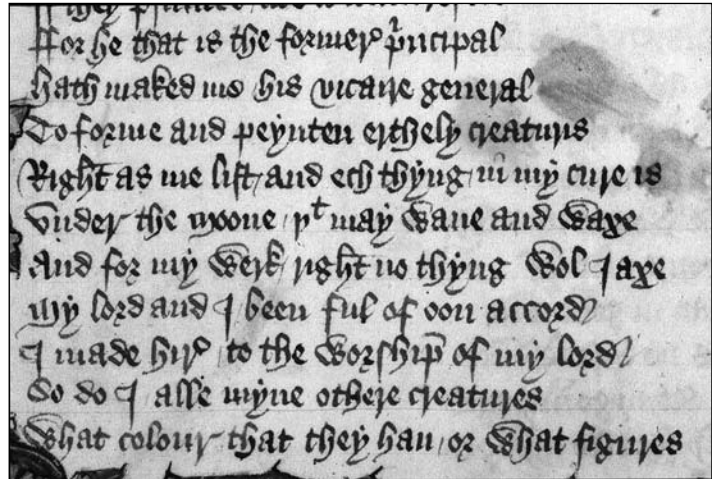 ffor he that is the former principal
hath maked me his vicaire general
To forme and peynten erthely creaturis
Right as me list / and ech thyng in my cure is
vnder the moone / þt may wane and waxe
And for my werk / right no thyng wol I axe
My lord and I been ful of oon accord
I made hir to the worship of my lord
So do I alle myne othere creatures
What colour that they han / or what figures